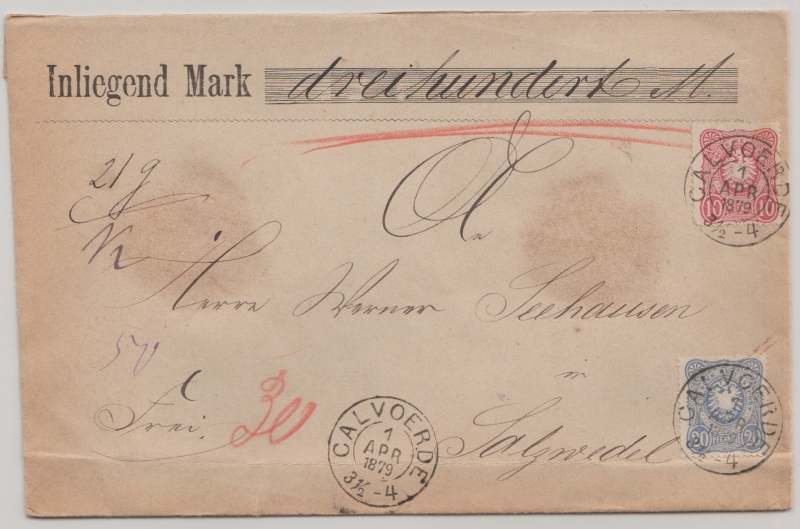 Inliegend Mark dreihundert M.
21 g
An
Herrn Werner Seehausen
in
Salzwedel
Frei.
30
10 10
CALVOERDE
1
APR
1879
3½-4
20 20
CALVOERDE
3½-4
CALVOERDE
1
APR
1879
3½-4